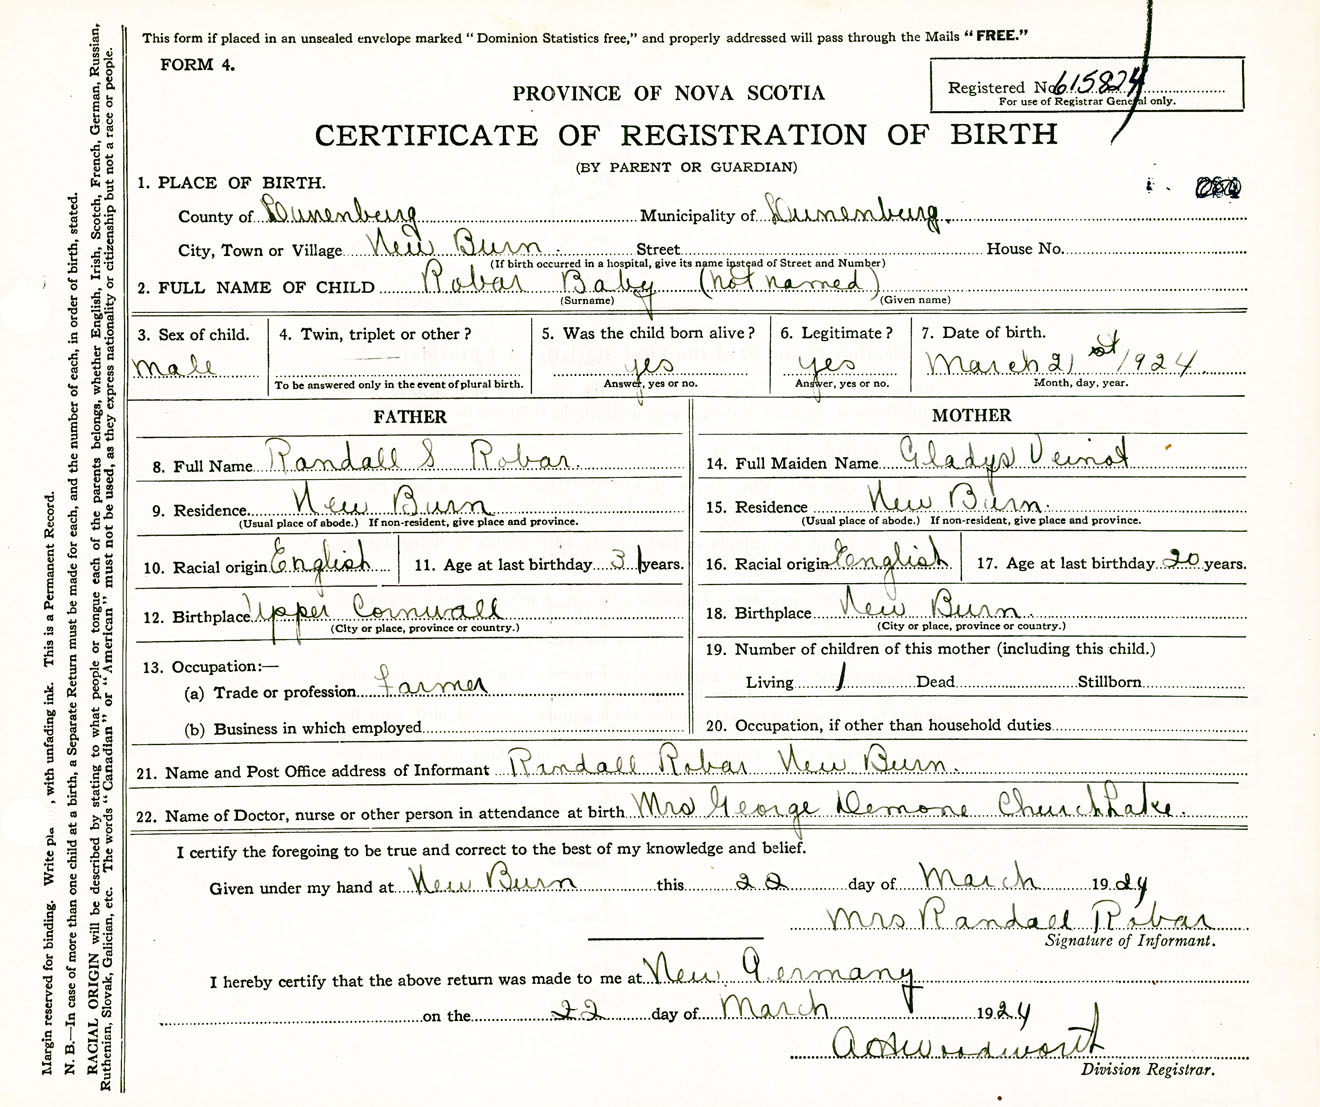 This form if placed in an unsealed envelope marked "Dominion Statistics free," and properly addressed will pass through the Mails "FREE."
FORM 4.
Registered No. 615824
For use of Registrar General only.
PROVINCE OF NOVA SCOTIA
CERTIFICATE OF REGISTRATION OF BIRTH
(BY PARENT OR GUARDIAN)
1. PLACE OF BIRTH.
County of Lunenburg Municipality of Lunenburg.
City, Town or Village New Burn. Street House No.
(If birth occurred in a hospital, give its name instead of Street and Number)
2. FULL NAME OF CHILD Robar Baby (not named)
(Surname) (Given name)
3. Sex of child. 4. Twin, triplet or other? 5. Was the child born alive? 6. Legitimate? 7. Date of birth.
Male yes yes March 21st 1924
To be answered only in the event of plural birth. Answer, yes or no. Answer, yes or no. Month, day, year.
FATHER
8. Full Name Randall S Robar.
9. Residence New Burn
(Usual place of abode.) If non-resident, give place and province.
10. Racial origin English 11. Age at last birthday 31 years.
12. Birthplace Upper Cornwall
(City or place, province or country.)
13. Occupation:—
(a) Trade or profession Farmer
(b) Business in which employed
MOTHER
14. Full Maiden Name Gladys Veinot
15. Residence New Burn.
(Usual place of abode.) If non-resident, give place and province.
16. Racial origin English 17. Age at last birthday 20 years.
18. Birthplace New Burn.
(City or place, province or country.)
19. Number of children of this mother (including this child.)
Living 1 Dead Stillborn
20. Occupation, if other than household duties
21. Name and Post Office address of Informant Randall Robar New Burn.
22. Name of Doctor, nurse or other person in attendance at birth Mrs George Demone Church Lake.
I certify the foregoing to be true and correct to the best of my knowledge and belief.
Given under my hand at New Burn this 22 day of March 1924
Mrs Randall Robar
Signature of Informant.
I hereby certify that the above return was made to me at New Germany
on the 22 day of March 1924
Woodworth
Division Registrar.
Margin reserved for binding. Write , with unfading ink. This is a Permanent Record.
N. B.—In case of more than one child at a birth, a Separate Return must be made for each, and the number of each, in order of birth, stated.
RACIAL ORIGIN will be described by stating to what people or tongue each of the parents belongs, whether English, Irish, Scotch, French, German, Russian,
Ruthenian, Slovak, Galician, etc. The words "Canadian" or "American" must not be used, as they express nationality or citizenship but not a race or people.